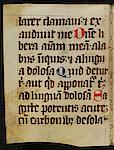 larer clamaui: ⁊ ex
audiuit me Dñe li
bera aīam meā: a la
biis iniquis, ⁊ a lingu
a dolosa Quid detur
t aut qd apponat t
ad linguam dolosā Sa
gitte potentis acute
cū carbonib desola